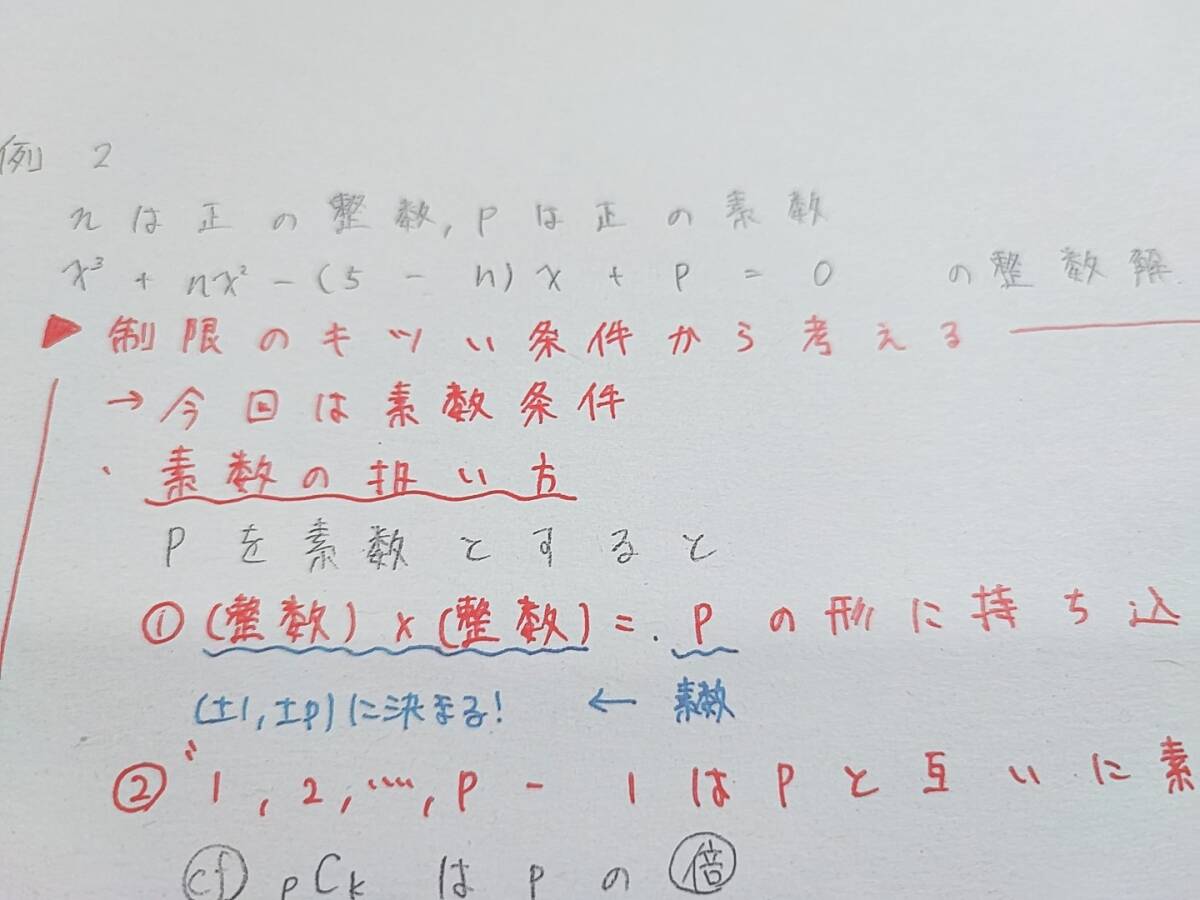 例 2
nは正の整数, pは正の素数
x³ + nx² - (5 - n)x + p = 0 の整数解
▶ 制限のキツい条件から考える
→ 今回は素数条件
・素数の扱い方
Pを素数とすると
① (整数) × (整数) = p の形に持ち込
(±1, ±p)に決まる! ← 素数
② 1, 2, ……, p - 1 は p と互いに素
cf pCk は p の 倍